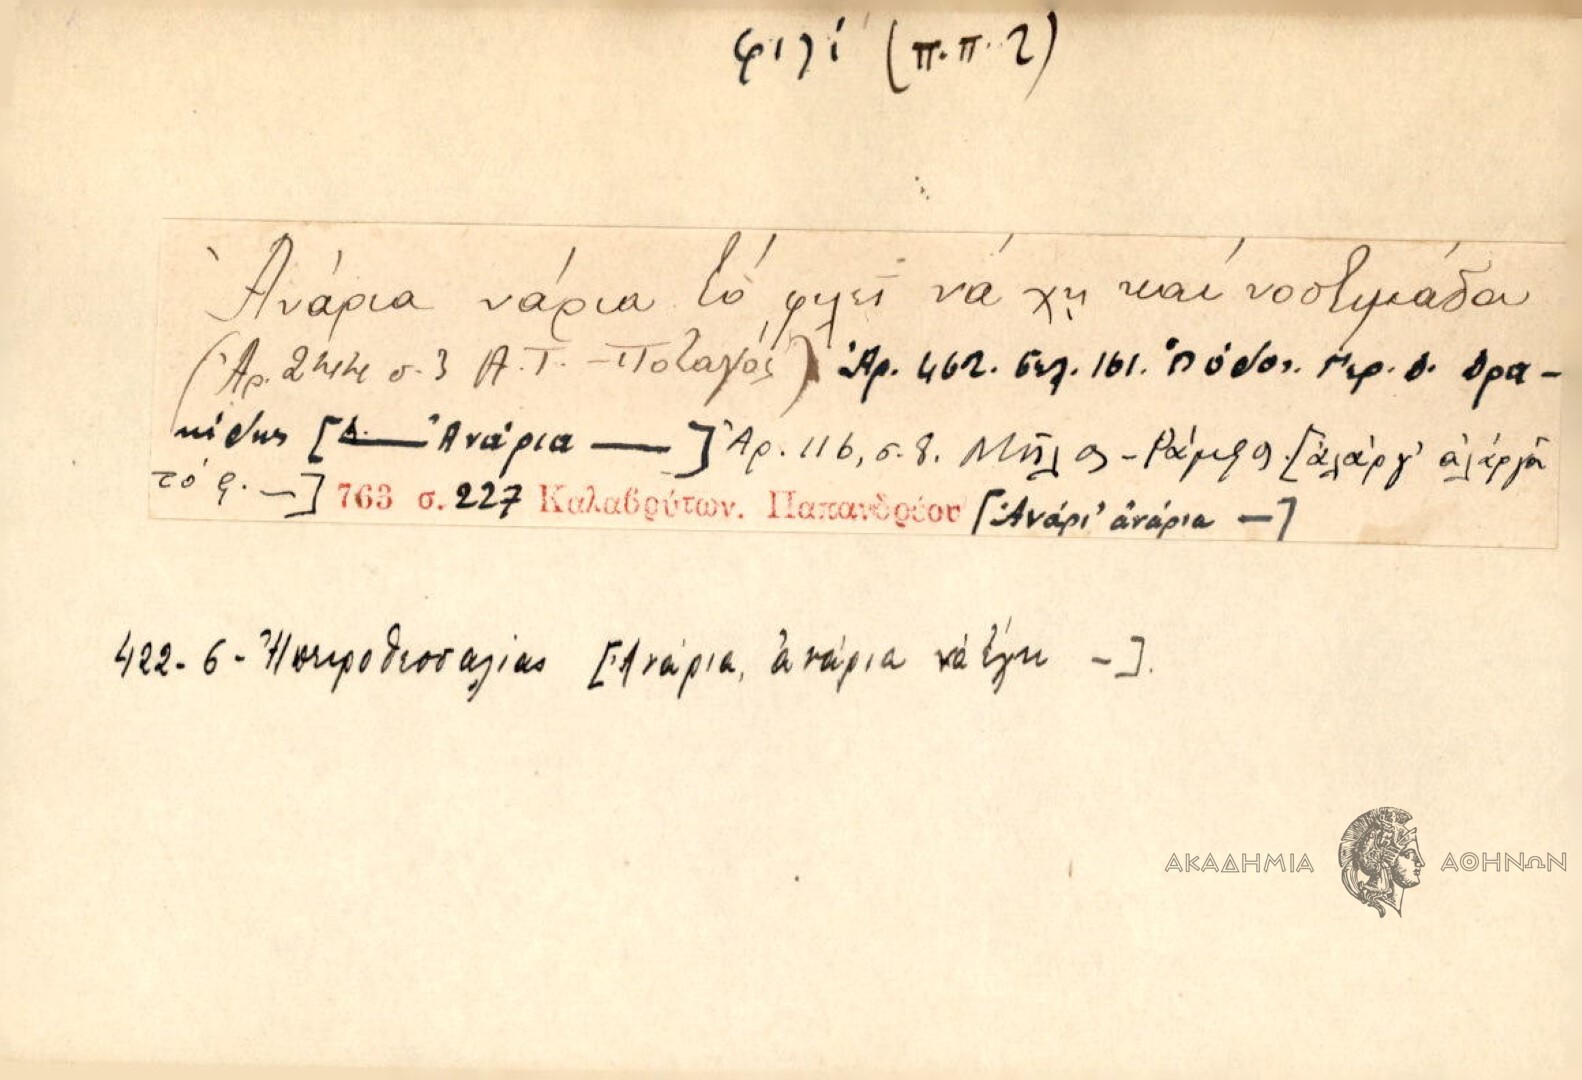 φιλί (π.π. 2)
Ἀνάρια νάρια τό φιλί νά χῃ καί νοστιμάδα
(Ἀρ. 2444 σ. 3 Α.Τ. - Ποταμός) Ἀρ. 462. Σελ. 161. Ῥόδος. Δρα-
κίδης [Ἀνάρια —] Ἀρ. 116, σ. 8. Μῆλος - Ράμφος. [ἀλάργ' ἀλάργα
τό φ. —] 763 σ. 227 Καλαβρύτων. Παπανδρέου [Ἀνάρι' ἀνάρια —]
422 - 6 - Ἠπειροθεσσαλίας [Ἀνάρια, ἀνάρια —].
ΑΚΑΔΗΜΙΑ ΑΘΗΝΩΝ